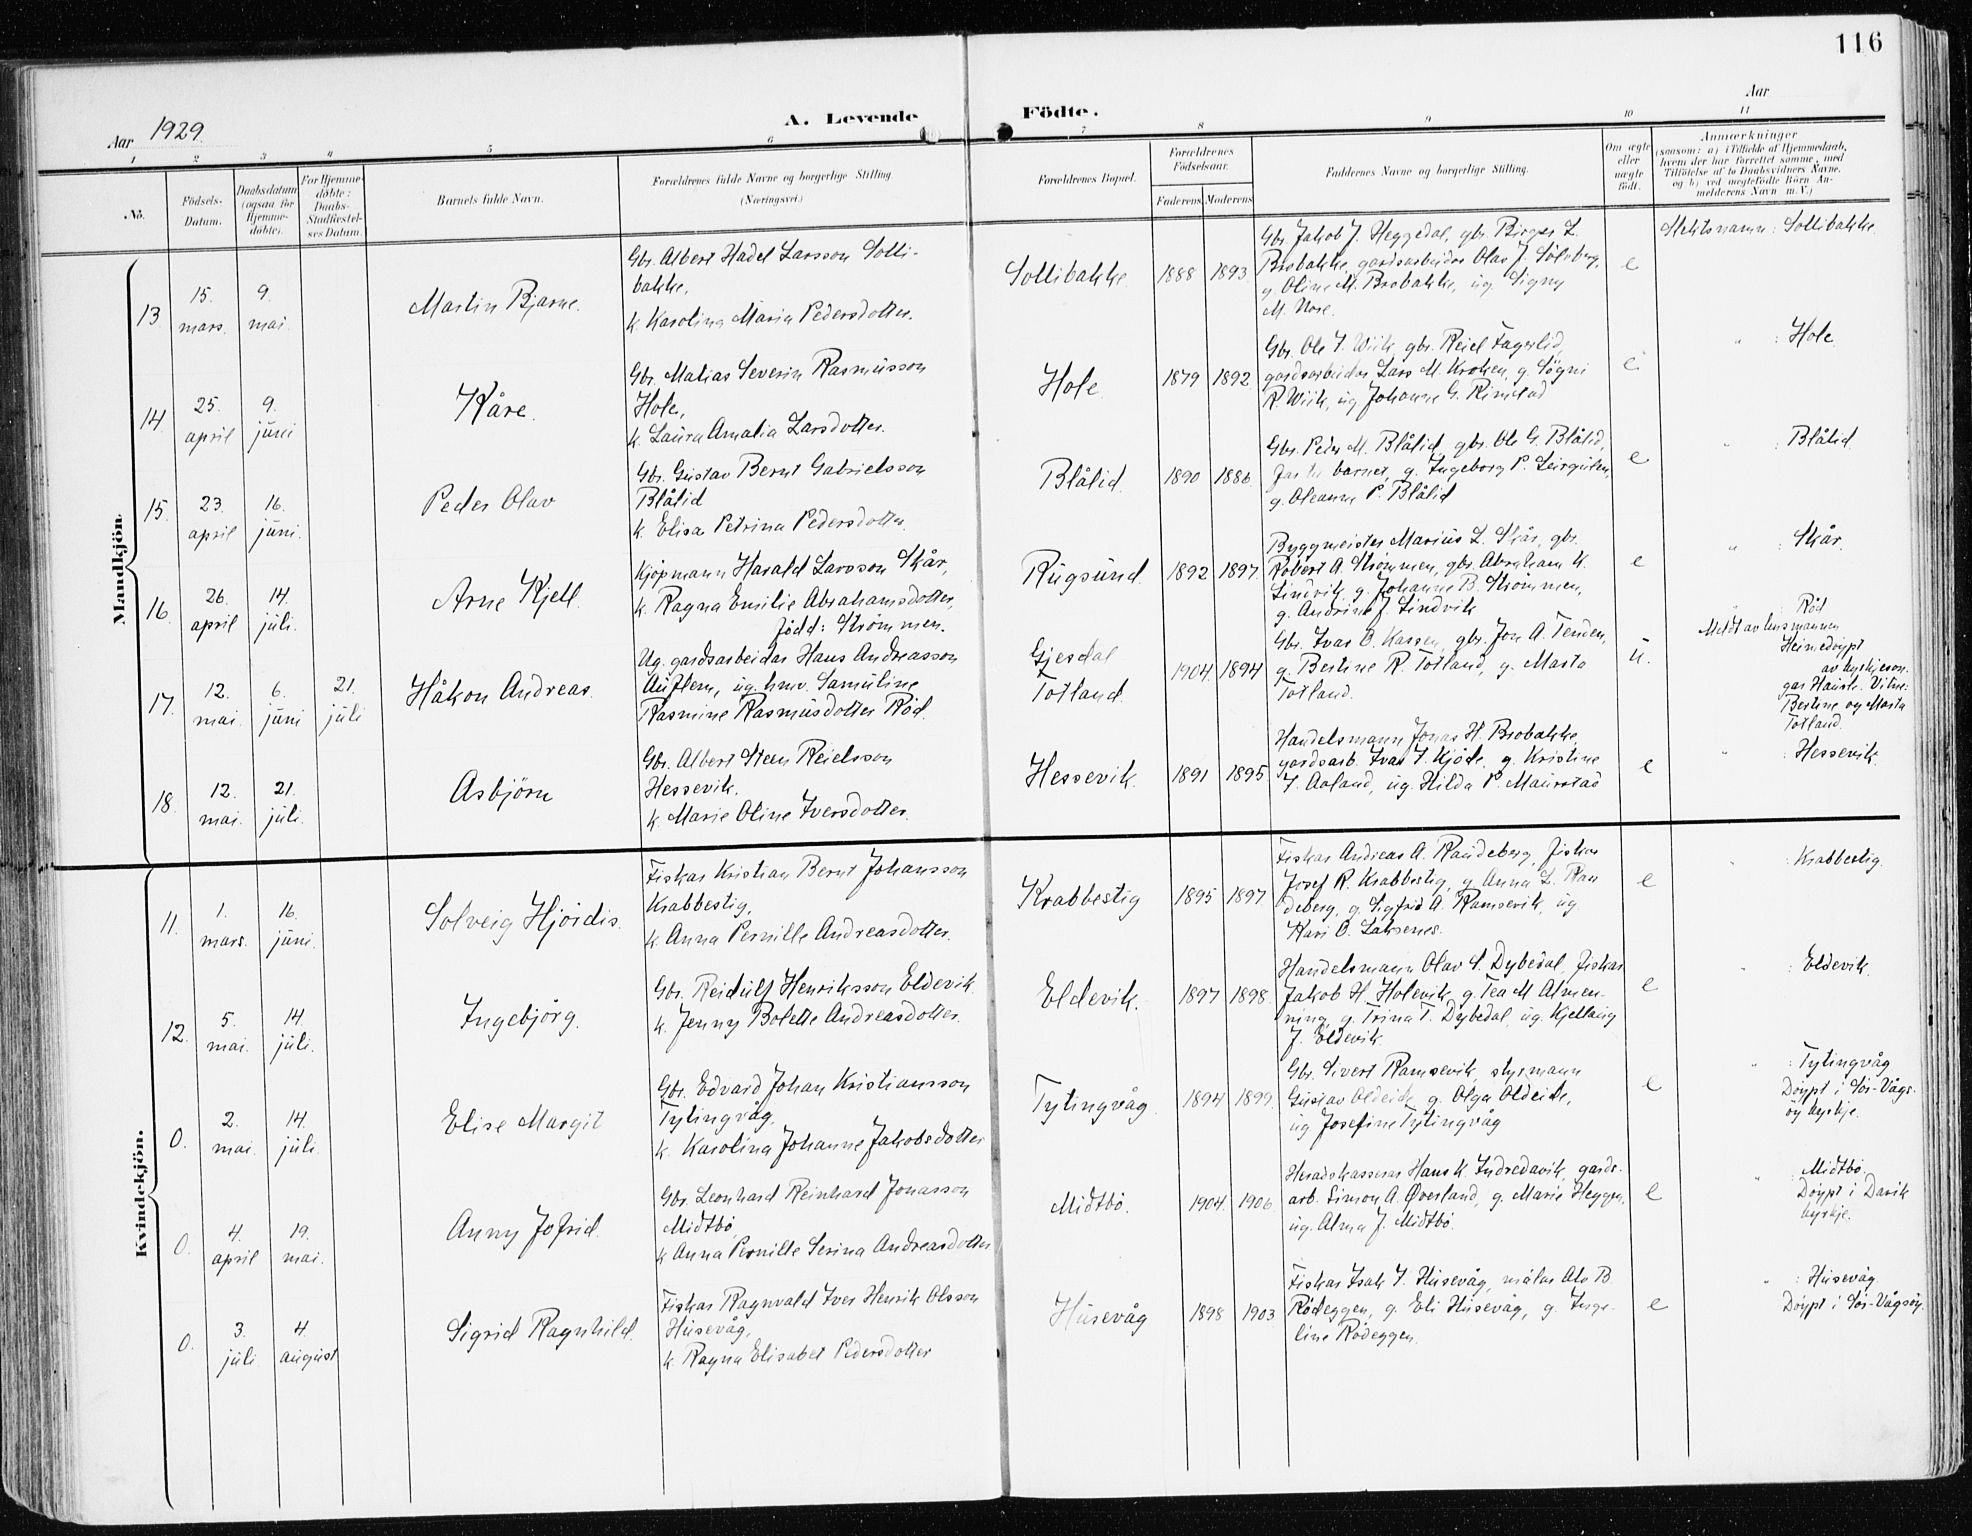 116
Aar 1929.
A. Levende Födte.
Aar
1 2 3 4 5 6 7 8 9 10 11
No.
Födsels-Datum.
Daabsdatum (ogsaa for Hjemme-döbte).
For Hjemme-döbte: Daabs-Stadfæstel-ses Datum.
Barnets fulde Navn.
Forældrenes fulde Navne og borgerlige Stilling.
(Næringsvei.)
Forældrenes Bopæl.
Forældrenes Födselsaar.
Faderens Moderens
Faddernes Navne og borgerlige Stilling.
Om ægte eller uægte födt.
Anmærkninger
(saasom: a) i Tilfælde af Hjemmedaab, hvem der har forrettet samme, med Tilföielse af to Daabsvidners Navne, og b) ved uægtefödte Börn Anmelderens Navn m. V.)
Mandkjön.
13
15. mars.
9. mai.
Martin Bjarne.
Gbr. Albert Hadel Larsson Solli-
bakke,
k. Karolina Maria Pedersdotter.
Sollibakke
1888 1893.
Gbr. Jakob J. Heggedal, gbr. Birger L.
Brobakke, gardsarbeidar Olav J. Sølvberg,
g. Oline M. Brobakke, ug. Signy
M. Nore.
e
Slektsnamn: Sollibakke.
14
25. april
9. juni
Kåre.
Gbr. Matias Severin Rasmusson
Hole,
k. Laura Amalia Larsdotter.
Hole
1879 1892.
Gbr. Ole J. Wiik, gbr. Reiel Fagerlid,
gardsarbeidar Lars M. Kroken, g. Søgni
R. Wiik, ug. Johanne G. Rimstad
e
" : Hole
15.
23. april
16. juni.
Peder Olav
Gbr. Gustav Bernt Gabrielsson
Blålid
k. Elisa Petrina Pedersdotter.
Blålid.
1890 1886.
Gbr. Peder M. Blålid, gbr. Ole G. Blålid,
far til barnet, g. Ingeborg P. Leirgulen,
g. Oleanna P. Blålid
e
" : Blålid.
16.
26. april
14. juli.
Arne Kjell
Kjøpmann Harald Larsson Skår,
k. Ragna Emilie Abrahamsdotter,
fødd: Strømmen.
Rugsund.
1892 1897.
Byggmeister Marius L. Skår, gbr.
Robert A. Strømmen, gbr. Abraham K.
Lindvik, g. Johanne B. Strømmen,
g. Andrine J. Lindvik
e
" : Skår.
17.
12. mai.
6. juni
21. juli
Håkon Andreas.
Ug. gardsarbeidar Hans Andreasson
Auflem, ug. hmv. Samuline
Rasmine Rasmusdotter Rød.
Gjesdal
Totland.
1904 1894
Gbr. Ivar O. Kassen, gbr. Jon A. Tenden,
g. Bertine R. Totland, g. Marta
Totland.
u.
" : Rød
Meldt av lensmannen
Heimedøypt
av kyrkjeson-
gar Hauste. Vitne:
Bertine og Marta
Totland.
18.
12. mai.
21. juli.
Asbjörn
Gbr. Albert Steen Reielsson
Hessevik.
k. Marie Oline Iversdotter.
Hessevik.
1891 1895.
Handelsmann Jonas H. Brobakke,
gardsarb. Ivar I. Kjöde, g. Kristine
J. Aaland, ug. Hilda P. Maurstad
e
" : Hessevik.
Kvindekjön.
11.
1. mars.
16. juni.
Solveig Hjördis.
Fiskar Kristian Bernt Johansson
Krabbestig,
k. Anna Pernille Andreasdotter.
Krabbestig
1895 1897.
Fiskar Andreas A. Randeberg, fiskar
Josef R. Krabbestig, g. Anna L. Ran
deberg, g. Sigfrid A. Ramsevik, ug.
Kari O. Laksenes.
e
" : Krabbestig.
12.
5. mai.
14. juli.
Ingebjörg.
Gbr. Reidulf Henriksson Eldevik
k. Jenny Bolette Andreasdotter.
Eldevik.
1897 1898.
Handelsmann Olav S. Dybedal, fiskar
Jakob H. Holevik, g. Tea M. Almen-
ning, g. Trina T. Dybedal, ug. Kjellaug
J. Eldevik.
e
" : Eldevik.
0.
2. mai.
14. juli.
Elise Margit
Gbr. Edvard Johan Kristiansson
Tytingvåg,
k. Karolina Johanne Jakobsdotter
Tytingvåg.
1894 1899.
Gbr. Sivert Ramsevik, styrmann
Gustav Oldeide, g. Olga Oldeide,
ug Josefine Tytingvåg
e
" : Tytingvåg
Døypt i Sør-Vågs-
øy kyrkje.
0.
4. april
19. mai.
Anny Jofrid.
Gbr. Leonhard Reinhard Jonasson
Midtbö,
k Anna Pernille Serina Andreasdotter
Midtbö.
1904. 1906.
Heradskasserar Hans K. Indredavik, gards-
arb. Simon A. Øverland, g. Marie Heggen,
ug. Alma J. Midtbö.
e
" : Midtbö.
Døypt i Davik
kyrkje.
0.
3. juli
4. august
Sigrid Ragnhild.
Fiskar Ragnvald Iver Henrik Olsson
Husevåg,
k. Ragna Elisabet Pedersdotter
Husevåg
1898 1903
Fiskar Isak I. Husevåg, målar Alv B.
Rødeggen, g. Eli Husevåg, g. Inge-
line Rødeggen.
e
" : Husevåg.
Døypt i Sør-Vågsøy.